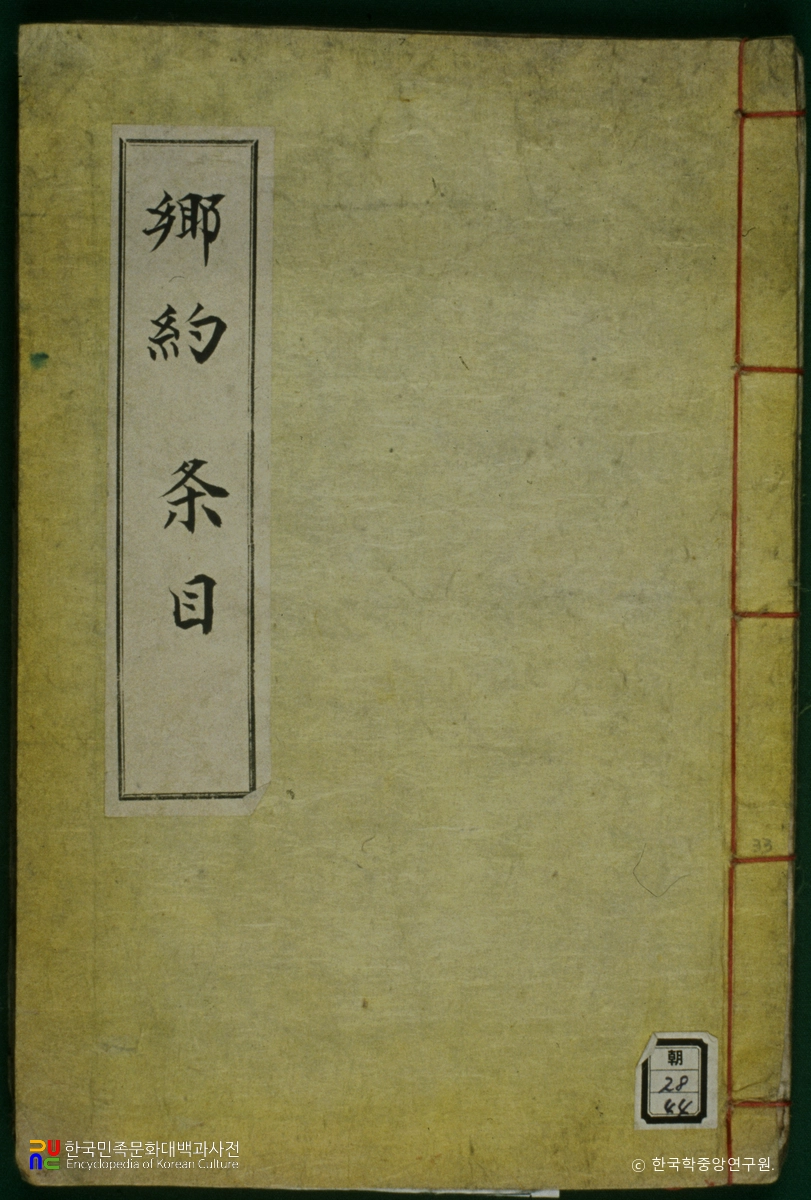 鄕約 条目
33
朝
28
44
한국민족문화대백과사전
Encyclopedia of Korean Culture
ⓒ 한국학중앙연구원.